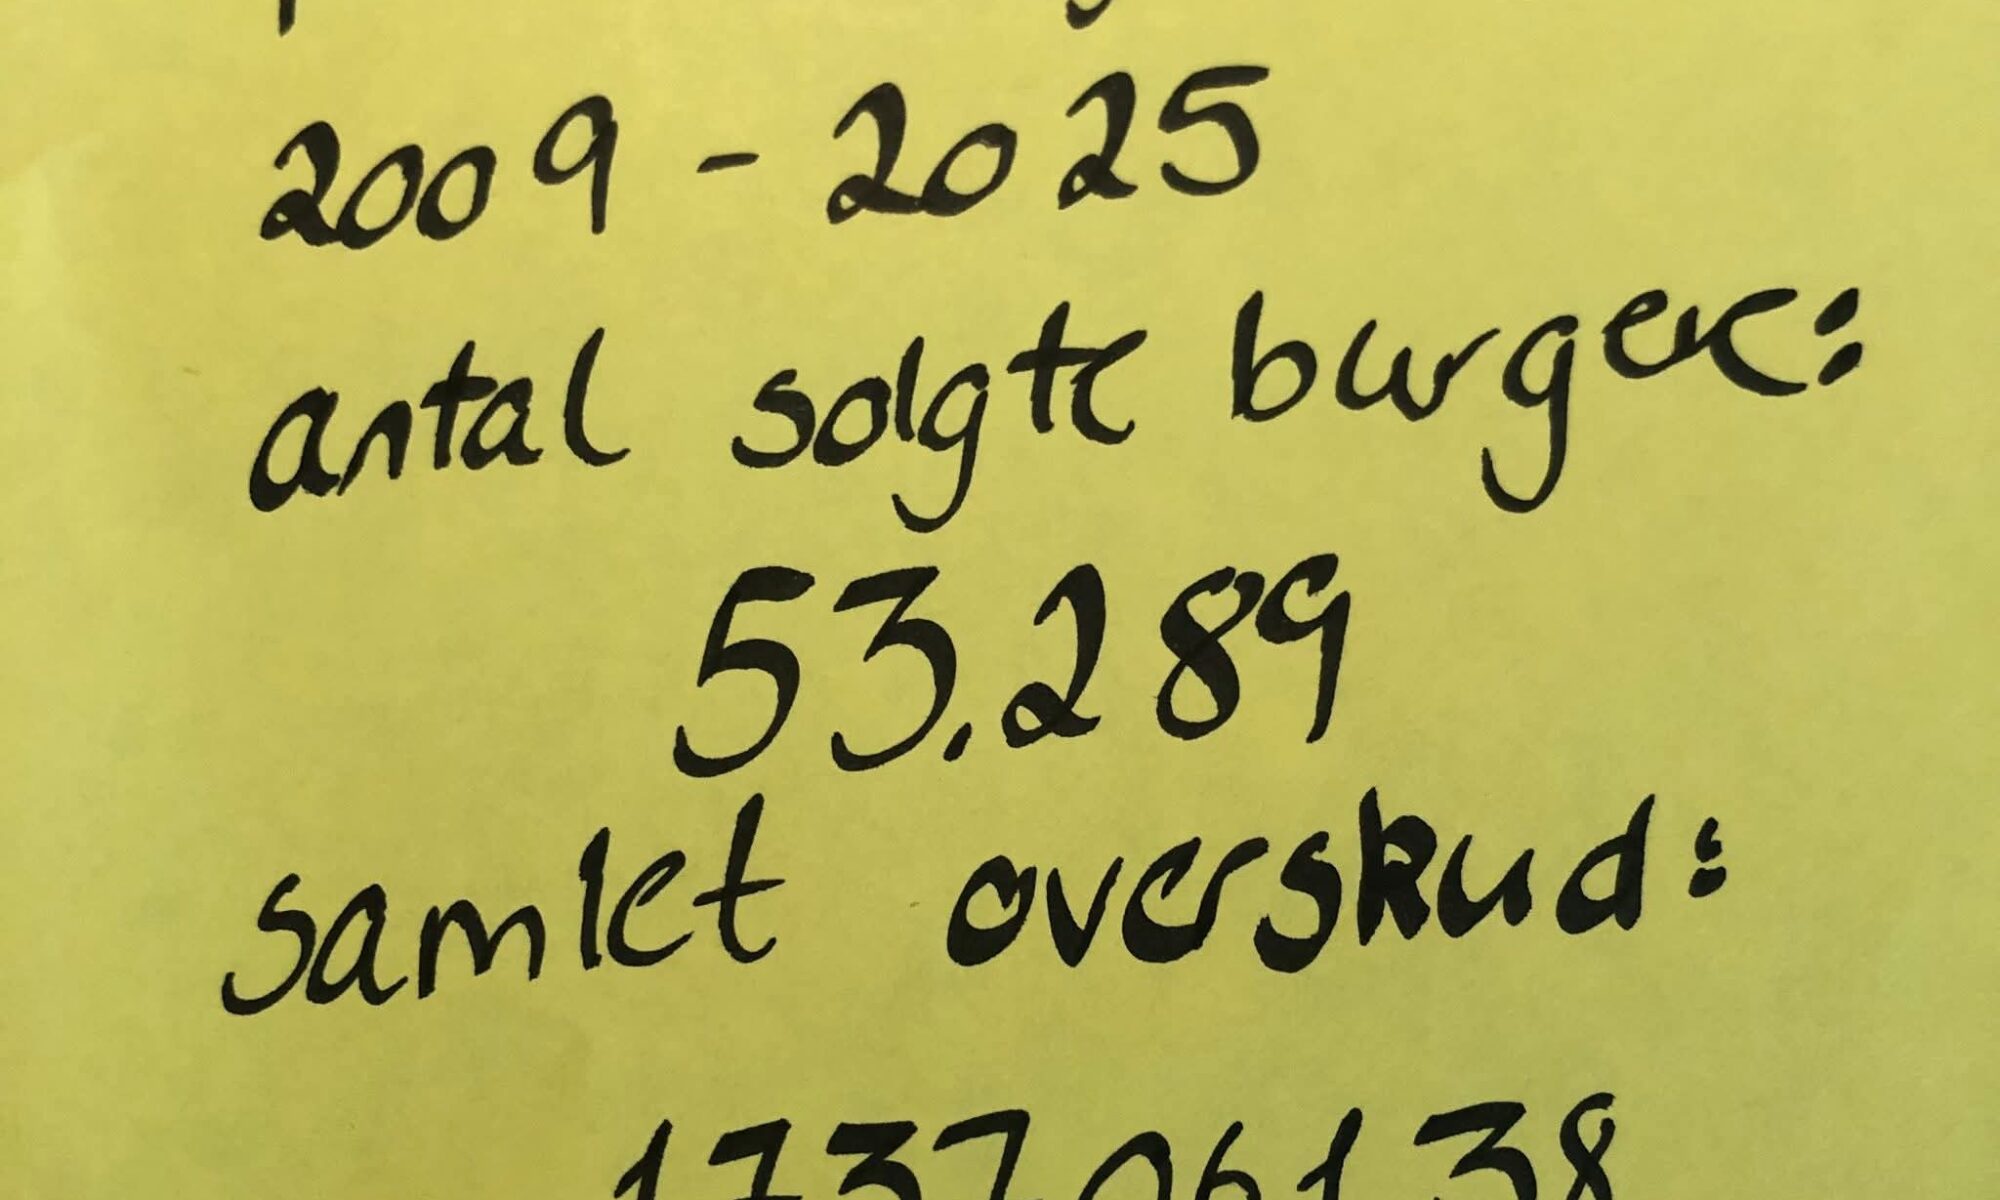 2009 - 2025
antal solgte burgere:
53.289
samlet overskud: